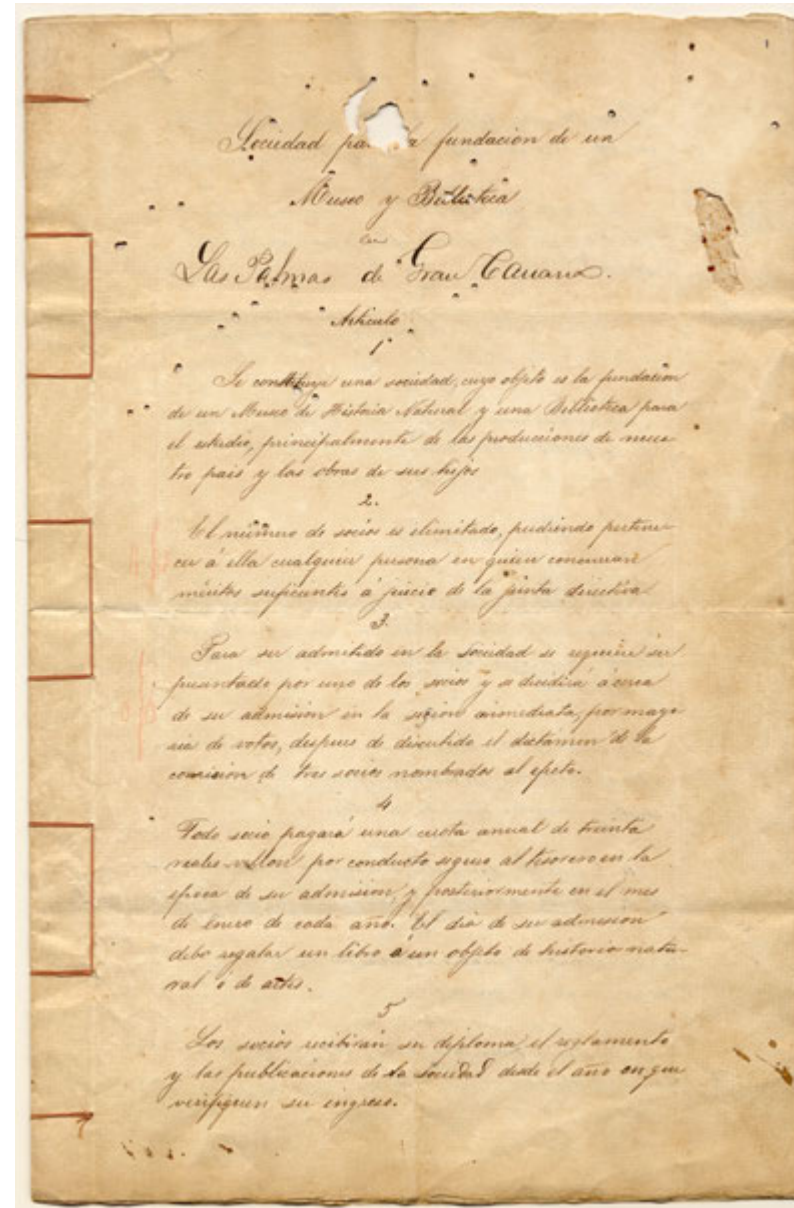 Sociedad para la fundacion de un
Museo y Biblioteca
en
Las Palmas de Gran Canaria.
Articulo
1
Se constituye una sociedad, cuyo objeto es la fundacion
de un Museo de Historia Natural y una Biblioteca para
el estudio, principalmente de las producciones de nues
tro pais y las obras de sus hijos
2.
El número de socios es ilimitado, pudiendo pertene-
cer á ella cualquier persona en quien concurran
méritos suficientes á juicio de la junta directiva
3.
Para ser admitido en la Sociedad se requiere ser
presentado por uno de los socios y se decidirá á cerca
de su admision en la sesion inmediata, por mayo
ria de votos, despues de discutido el dictámen de la
comision de tres socios nombrados al efecto.
4
Todo socio pagará una cuota anual de treinta
reales vellon por conducto seguro al tesorero en la
epoca de su admision, y posteriormente en el mes
de Enero de cada año. El dia de su admision
debe regalar un libro ó un objeto de historia natu-
ral o de artes.
5
Los socios recibirán su diploma, el reglamento
y las publicaciones de la sociedad desde el año en que
verifiquen su ingreso.